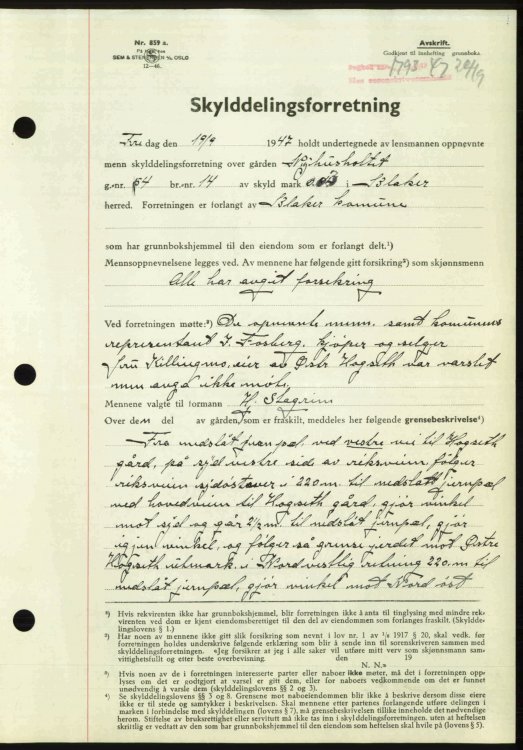 Nr. 859 a.
SEM & STENERSEN A/S OSLO
12—46.
Avskrift.
Godkjent til innhefting i grunnboka.
1793 47 20/9
Skylddelingsforretning
Fre dag den 19/9 1947 holdt undertegnede av lensmannen oppnevnte
menn skylddelingsforretning over gården Nyhusholtet
g.-nr. 54 br.-nr. 14 av skyld mark i Blaker
herred. Forretningen er forlangt av Blaker komune
som har grunnbokshjemmel til den eiendom som er forlangt delt.¹)
Mennsoppnevnelsen legges ved. Av mennene har følgende gitt forsikring²) som skjønnsmenn
Alle har avgit forsikring
Ved forretningen møtte:³) De opnevnte menn. samt komunens
representant I. Fosberg. kjøper og selger
Fru Killingmo, eier av Østr Hogseth var varslet
men avga ikke møte.
Mennene valgte til formann H. Stagrim
Over den del av gården, som er fraskilt, meddeles her følgende grensebeskrivelse⁴)
Fra nedslåt jernpæl ved vestre vei til Hogseth
gård, på syd vestre side av riksveien følger
riksveien sydøstover i 220 m. til nedslått jernpæl
ved hovedveien til Hogseth gård, gjør vinkel
mot syd og går 212 m. til nedslåt jernpæl, gjør
igjen vinkel, og følger så grense jerdet mot Østre
Hogseth utmark, i Nord vestlig retning 220 m. til
nedslåt jernpæl, gjør vinkel mot Nord øst
¹) Hvis rekvirenten ikke har grunnbokshjemmel, blir forretningen ikke å anta til tinglysing med mindre rek-
virenten ved dom er kjent eiendomsberettiget til den del av eiendommen som forlanges fraskilt. (Skylddelingslovens § 1.)
²) Har noen av mennene ikke gitt slik forsikring som nevnt i lov nr. 1 av 1/6 1917 § 20, skal vedk. før
forretningen holdes underskrive følgende erklæring som blir å sende inn til sorenskriveren sammen med
skylddelingsforretningen. «Jeg forsikrer at jeg i alle saker vil utføre mitt verv som skjønnsmann sam-
vittighetsfullt og etter beste overbevisning. den 19
N. N.»
³) Hvis noen av de i forretningen interesserte parter eller naboer ikke møter, må det i forretningen opp-
lyses om det er godtgjort at varsel er gitt dem, eller for naboers vedkommende om det er funnet
unødvendig å varsle dem (skylddelingslovens §§ 2 og 3).
⁴) Se skylddelingslovens §§ 3 og 8. Grensene mot naboeiendommen blir ikke å beskrive dersom disse eiere
ikke er til stede og samtykker i beskrivelsen. Skal mennene etter partenes forlangende utføre delingen i
marken i forbindelse med skylddelingen (lovens § 7), må grensebeskrivelsen tillike inneholde det nødvendige
herom. Stiftelse av bruksrettighet eller servitutt må ikke tas inn i skylddelingsforretningen, uten at heftelsen
skriftlig er vedtatt av den som har grunnbokshjemmel til den eiendom som heftelsen skal hvile på (lovens § 5).